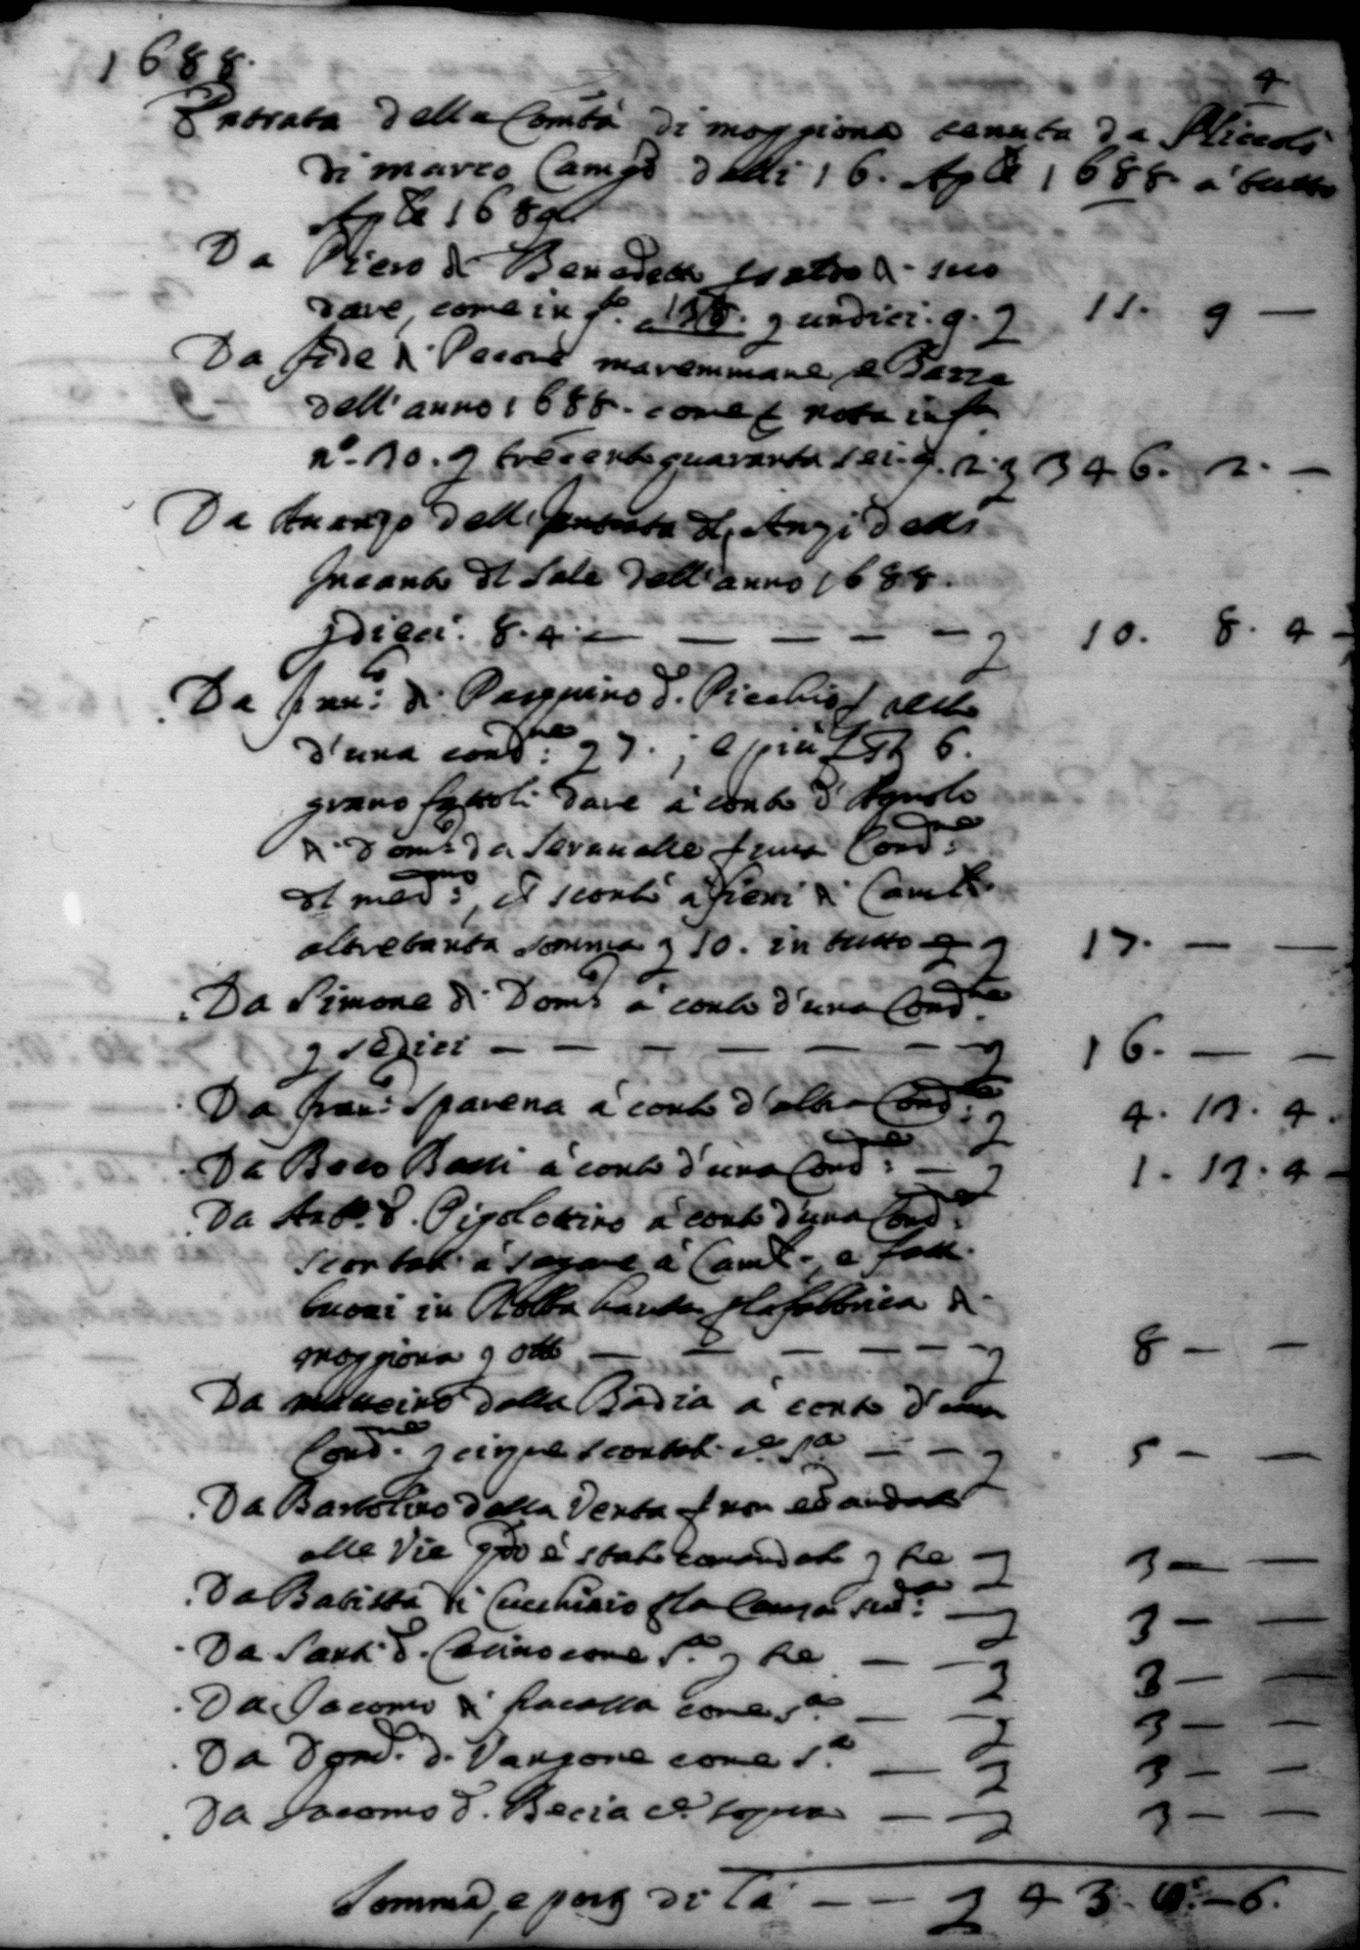 1688.
4
Entrata della Com.tà di moggiona tenuta da Niccolò
di marco Camp.i dalli 16. Ap.le 1688. à tutto
Ap.le 1689.
Da Piero di Benedetto per altro di suo
dare, come in f.o 138. £ undici. 9. £ 11. 9 —
Da fide di Pecore maremmane e Bazza
dell'anno 1688. come per nota in f.a
n.o 30. £ trecento quaranta sei. 2. £ 346. 2. —
Da Avanzo dell'entrata del Anzi delli
Incanto del Sale dell'anno 1688.
£ dieci. 8. 4. — — — — — — £ 10. 8. 4 —
Da fran.co di Pasquino d. Picchio per resto
d'una cond.ne £ 7. ; e più per st.a 6.
grano dare à conto d'Agnolo
di Dom.co da Seravalle per una Cond.ne
del med.mo, et scontò à fieni di Cam.li
altretanta somma £ 10. in tutto — £ 17. — —
Da Simone di Dom.co à conto d'una Cond.ne
£ sedici — — — — — — — £ 16. — —
Da fran.co Spavena à conto d'altra Cond.ne £ 4. 13. 4.
Da Beco Bassi à conto d'una Cond.ne — £ 1. 13. 4 —
Da Ant.o d. Pigolottino à conto d'una Cond.ne
scontati à segare à Cam.li, e fatti
buoni in Robba havuta per la fabbrica di
moggiona £ otto — — — — — — £ 8 — —
Da matteino dalla Badia à conto d'una
Cond.ne £ cinque scontati c.e s.a — — — £ 5 — —
Da Bartolino dalla Venta per non es. andato
alle Vie q.do è stato comandato £ tre — £ 3 — —
Da Batista di Cucchiaio per la Causa sud.a — £ 3 — —
Da Santi d. Cecino come s.a £ tre — — £ 3 — —
Da Jacomo di fracassa come s.a — — £ 3 — —
Da Dom.co d. Vangone come s.a — £ 3 — —
Da Jacomo d. Becia c.e sopra — — £ 3 — —
Somma, e porta di là — — £ 43 . — 6.